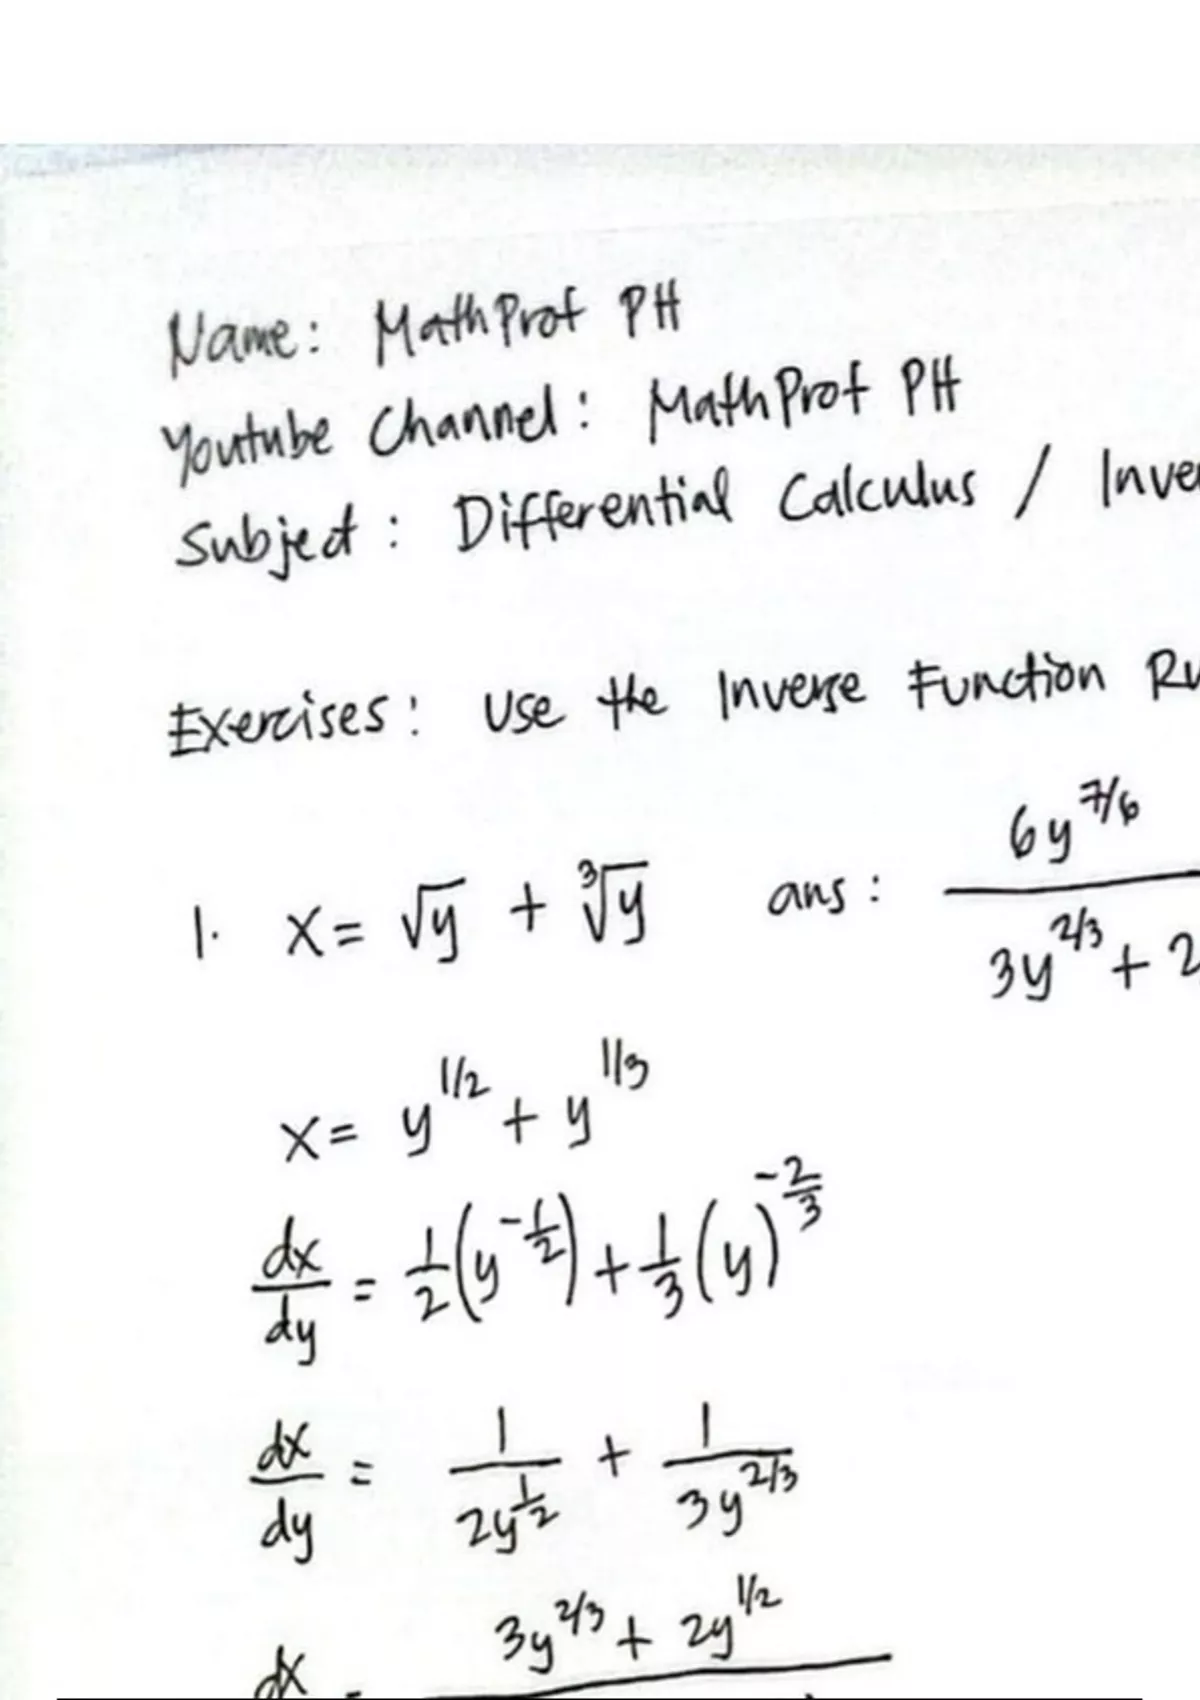 Name: MathProf PH
Youtube Channel: MathProf PH
Subject: Differential Calculus / Inve
Exercises: Use the Inverse Function Ru
1. x = √y + ∛y   ans: 6y^7/6 / 3y^2/3 + 2
x = y^1/2 + y^1/3
dx/dy = 1/2 (y^-1/2) + 1/3 (y)^-2/3
dx/dy = 1/2y^1/2 + 1/3y^2/3
dx = 3y^2/3 + 2y^1/2